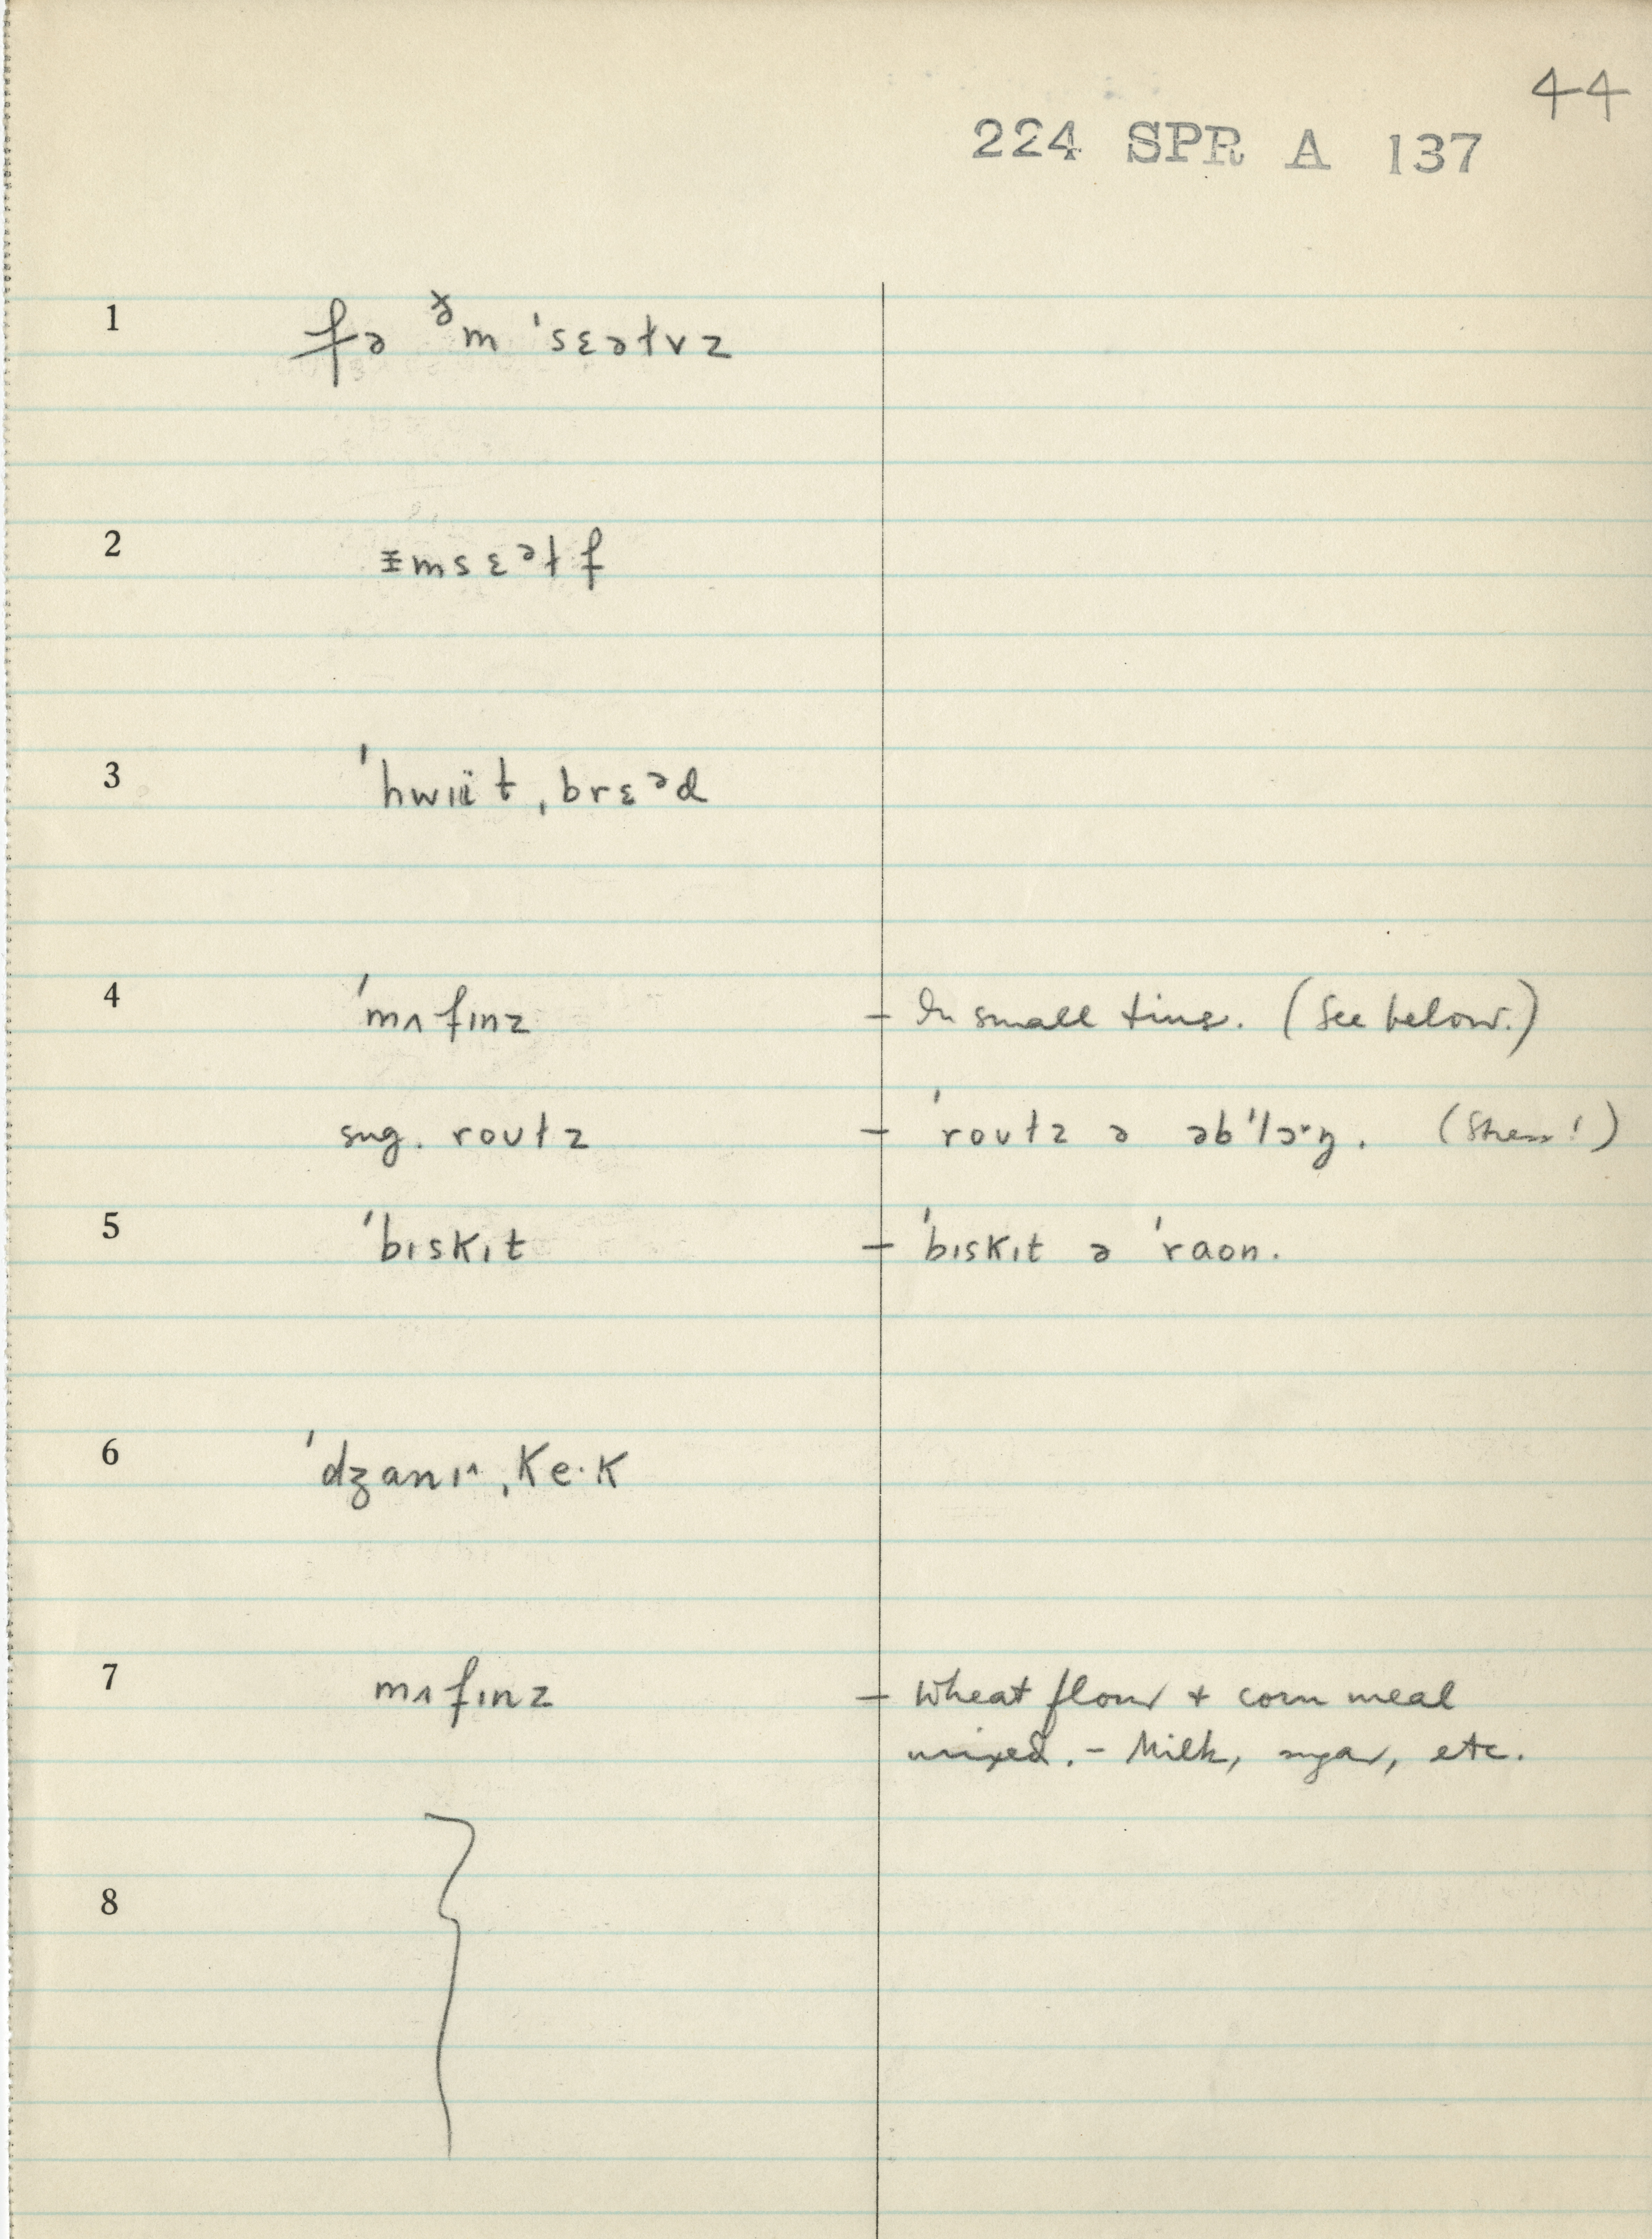 44
224 SPR A 137
1 fə ᵊ̌m 'sɛəɫvz
2 ᵻmsɛᵊɫf
3 ˈhwɪït ˌbrɛᵊd
4 ˈmʌfɪnz – In small tins. (See below.)
sug. roʊɫz – ˈroʊɫz ə əbˈlɔˑŋ. (Stress!)
5 ˈbɪskɪt – ˈbɪskɪt ə ˈraon.
6 ˈdʒanɪ^ ˌkeˑk
7 mʌfɪnz – Wheat flour + corn meal
mixed. – Milk, sugar, etc.
8